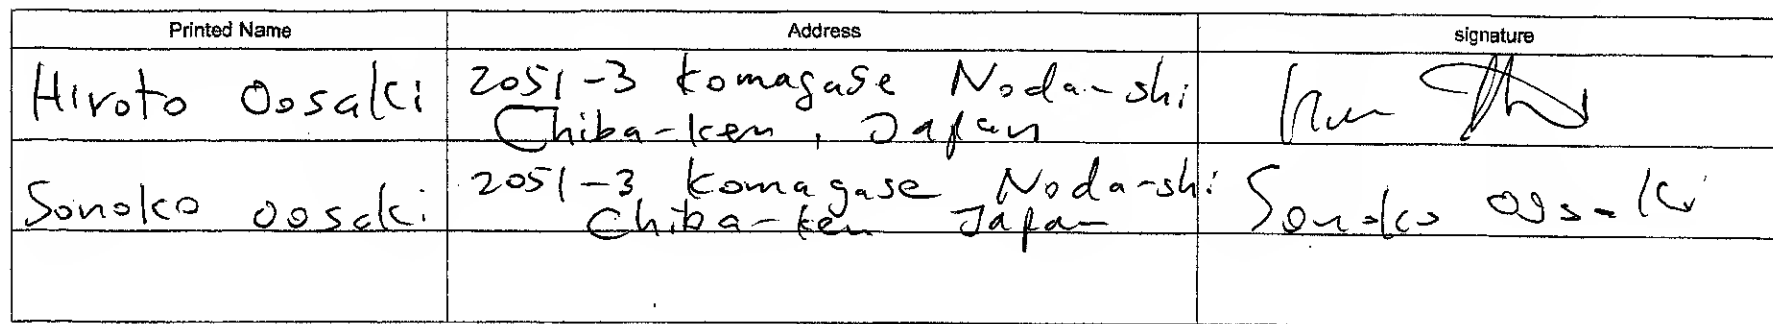 Printed Name Address signature
Hiroto Oosaki 2051-3 Komagase Noda-shi
Chiba-ken, Japan
Sonoko Oosaki 2051-3 Komagase Noda-shi Sonoko Oosaki
Chiba-ken Japan